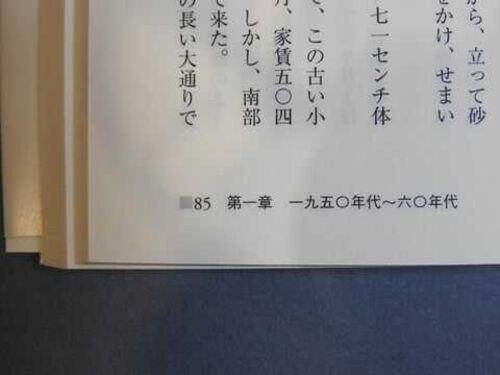 から、立って砂
をかけ、せまい
七一センチ体
で、この古い小
月、家賃五〇四
しかし、南部
で来た。
の長い大通りで
85 第一章 一九五〇年代~六〇年代